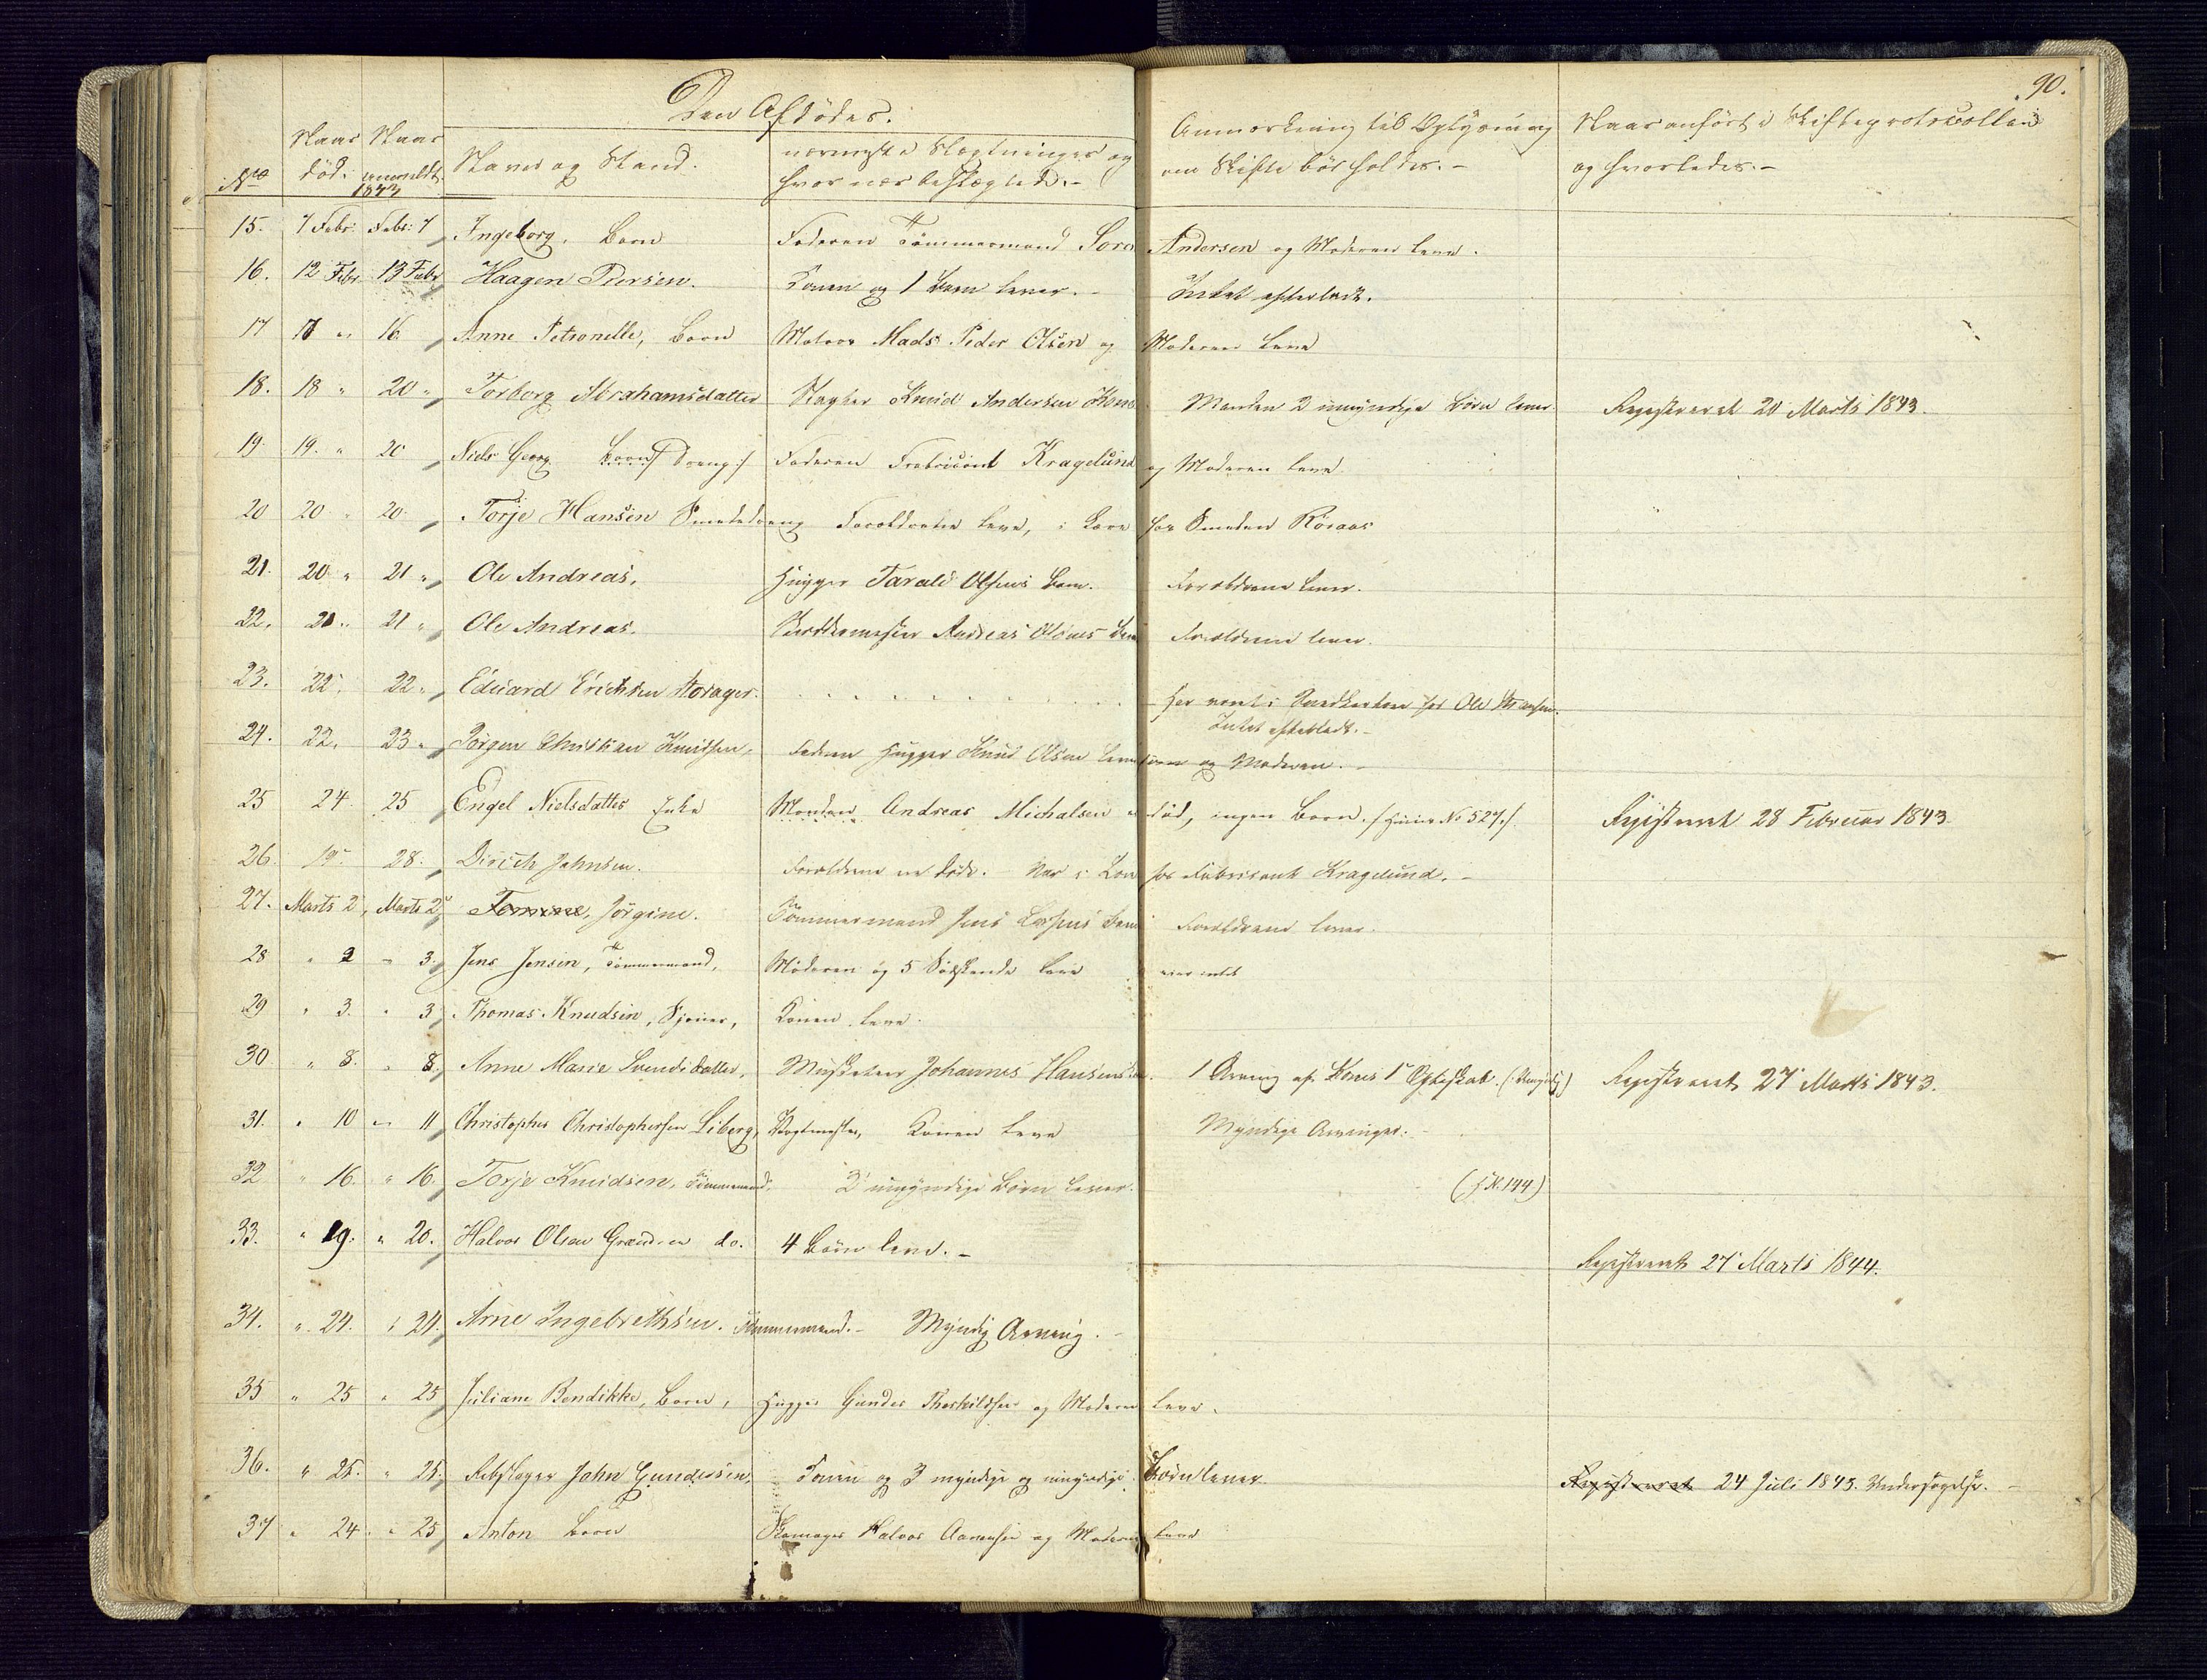 90.
Den Afdödes.
No Naar död. Naar anmeldt. 1843 Navn og Stand. nærmeste Slægtninger og hvor nær beslægtede.- Anmærkning til Oplysning om Skifte bör holdes.- Naar anfört i Skifteprotocollen og hvorledes.-
15. 7 Febr: Febr: 7 Ingeborg, Barn Faderen Tömmermand Andersen og Moderen leve.
16. 12 Febr 13 Febr Haagen Persen. Konen og 1 Barn lever. - Intet efterladt.
17 17 " 16 Anne Petronelle, Barn Matros Mads Peder Olsen og Moderen leve
18. 18 " 20 " Torborg Abrahamsdatter Knud Andersen Kone Manden 2 umyndige Börn lever. Registreret 20 Marts 1843.
19 19. " 20 Niels Georg Barn /: Dreng :/ Faderen Fabricant Kragelund og Moderen leve.
20 20 " 20 Torje Hansen Smededreng Forældrene leve, i Lære hos Smeden Röraas
21. 20 " 21 " Ole Andreas, Hugger Tarald Olsens Barn. Forældrene lever.
22. 21 " 21 " Ole Andreas. Andreas Olsens Barn Forældrene lever.
23. 22 " 22 " Eduard Erichsen Hovager. Har været i Snedkerlære hos Ole
Intet efterladt.-
24. 22. 23 " Jörgen Christian Knudsen, Faderen Hugger Knud Olsen og Moderen.-
25 24 25 Engel Nielsdatter Enke Manden Andreas Michalsen er död, ingen Börn. /: Huus No 527 :/ Registreret 28 Februar 1843
26. 19 28. Dirich Johnsen. Forældrene er döde. Var i Lære hos Fabricant Kragelund. -
27. Marts 2, Marts 2 Tomine, Jörgine. Tömmermand Jens Barn Forældrene lever.
28 " 2 " 3. Jens Jensen, Tömmermand, Moderen og 5 Södskende leve eier intet
29 " 3. " 3 Thomas Knudsen, Konen leve.
30 " 8. " 8. Anne Marie Svendsdatter, Musketeer Johannes Hansens 1 Arving af Kones 1ste Ægteskab. (Umyndig) Registreret 27 Marts 1843.
31. " 10 " 11 Christopher Christophersen Liberg, Vagtmester, Konen leve Myndige Arvinger. -
32 " 16. " 16. Torje Knudsen, Tömmermand. 2 umyndige Börn lever. (H. N. 144)
33. " 19. " 20. Halvor Olsen do. 4 Börn leve. - Registreret 27 Marts 1844.
34. " 24. " 24. Arne Ingebrethsen. Tömmermand. - Myndig Arving. -
35 " 25 " 25 Juliane Bendikke, Barn, Hugger Gunder Therkildsen og Moderen leve.
36. " 25. " 25. Rebslager John Gundersen, Konen og 3 myndige og umyndige Börn lever Registreret 24 Juli 1843. Undersögelse. -
37 " 24 " 25 Anton Barn Skomager Halvor Aanensen og Moderen leve